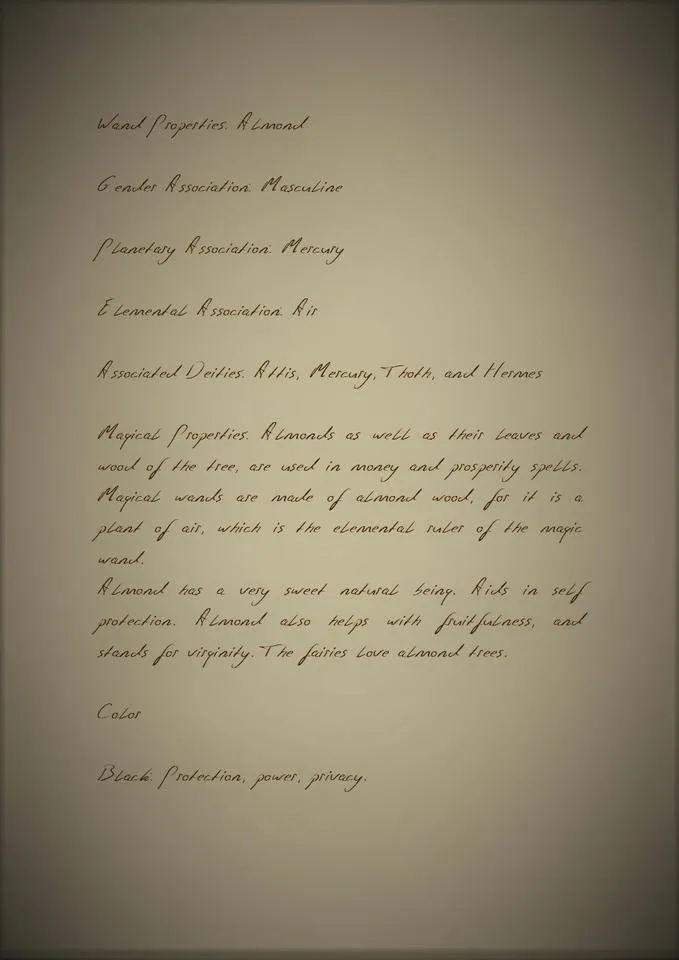 Wand Properties: Almond
Gender Association: Masculine
Planetary Association: Mercury
Elemental Association: Air
Associated Deities: Attis, Mercury, Thoth, and Hermes
Magical Properties: Almonds as well as their leaves and
wood of the tree, are used in money and prosperity spells.
Magical wands are made of almond wood, for it is a
plant of air, which is the elemental ruler of the magic
wand.
Almond has a very sweet natural being. Aids in self
protection. Almond also helps with fruitfulness, and
stands for virginity. The fairies love almond trees.
Color
Black: Protection, power, privacy.